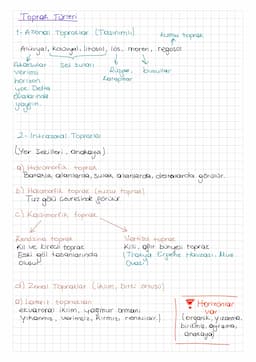 Toprak Türleri
1- Azonal Topraklar (Taşınmış)
kumlu toprak
Alüvyal, kolüvyal, litosol, lös, moren, regosol
Akarsular
Sel suları
Rüzgar,
buzullar
verimli
horizon
yok Delta
ovalarında
yaygın.
2- İntrazonal Topraklar
(Yer Şekilleri, anakaya)
a) Halomorfik toprak
Bataklık alanlarda, sulak alanlarda, görülür.
b) Halomorfik toprak (tuzlu toprak)
Tuz gölü çevresinde görülür
c) Kalsimorfik toprak
Rendzina toprak
Vertisol toprak
Kil ve kireçli toprak
Killi, ağır bünyeli toprak
Eski göl tabanlarında
(Trakya Ergene Havzası, Muş
oluşur
Ovası)
d) Zonal Topraklar (iklim, bitki örtüsü)
a) Laterit toprakları
ekvatoral iklim, yağmur ormanı
yıkanmış, verimsiz, kırmızı renklidir.)
Horizonlar
var
(organik, yıkanma,
birikme, ayrışma,
anakaya)